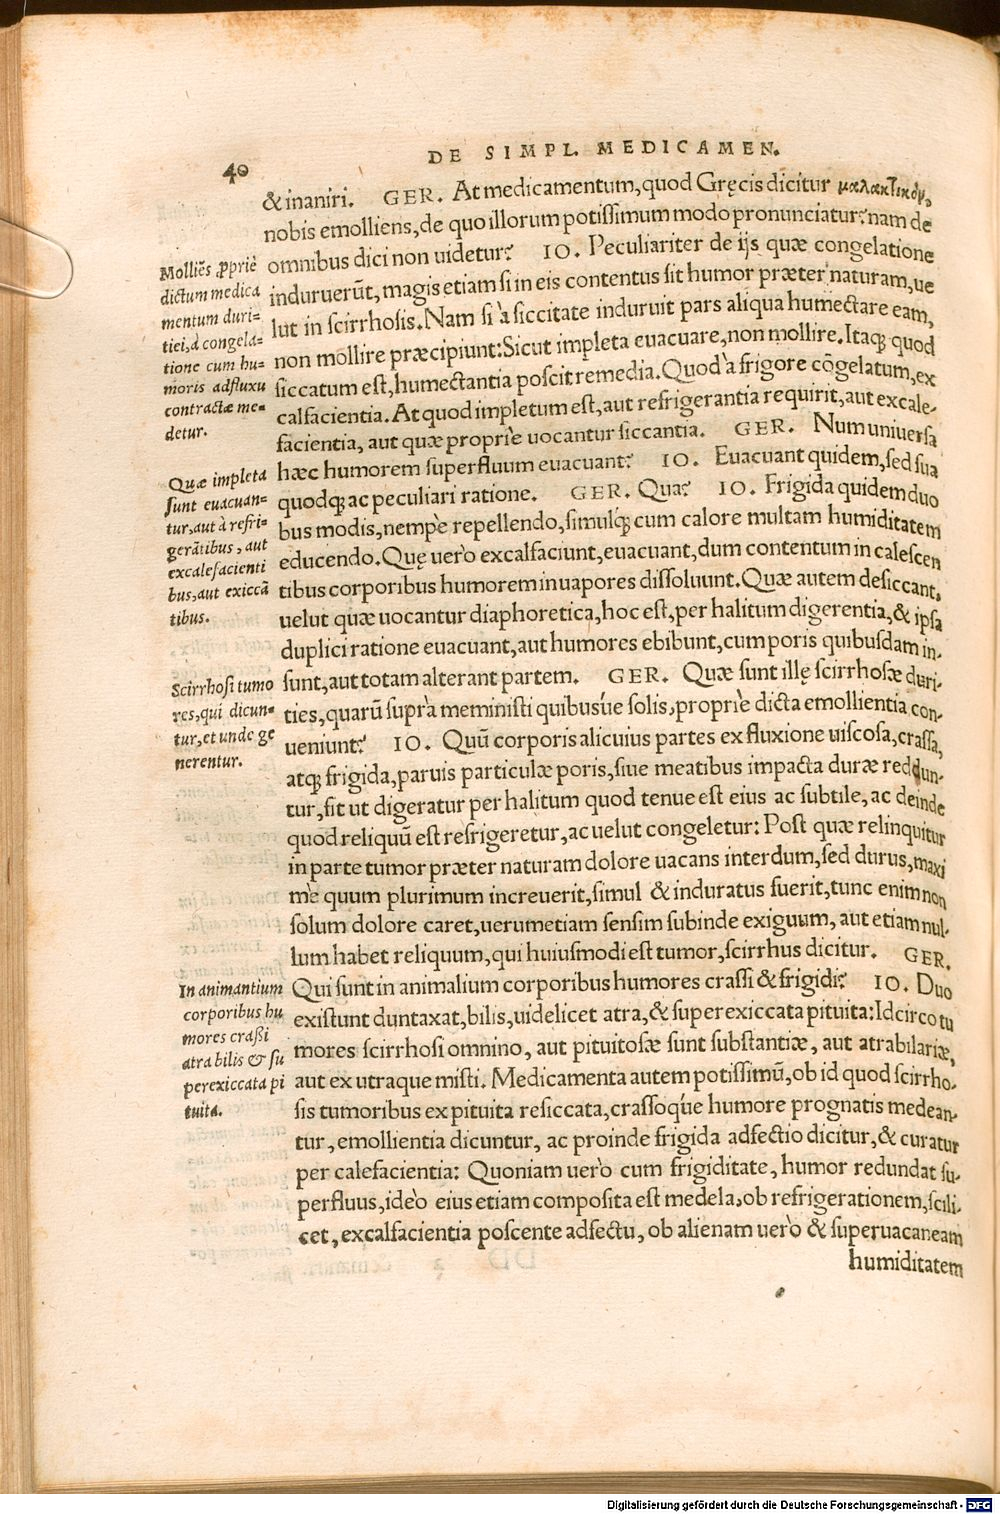 40
DE SIMPL. MEDICAMEN.
& inaniri. GER. At medicamentum, quod Gręcis dicitur μαλακτικὸν,
nobis emolliens, de quo illorum potissimum modo pronunciatur? nam de
omnibus dici non uidetur? IO. Peculiariter de ijs quæ congelatione
induruerūt, magis etiam si in eis contentus sit humor præter naturam, ue
lut in scirrhosis. Nam si à siccitate induruit pars aliqua humectare eam,
non mollire præcipiunt: Sicut impleta euacuare, non mollire. Itaq; quod
siccatum est, humectantia poscit remedia. Quod à frigore cōgelatum, ex
calfacientia. At quod impletum est, aut refrigerantia requirit, aut excale-
facientia, aut quæ propriè uocantur siccantia. GER. Num uniuersa
hæc humorem superfluum euacuant? IO. Euacuant quidem, sed sua
quodq; ac peculiari ratione. GER. Qua? IO. Frigida quidem duo
bus modis, nempè repellendo, simulq́; cum calore multam humiditatem
educendo. Quę uerò excalfaciunt, euacuant, dum contentum in calescen
tibus corporibus humorem in uapores dissoluunt. Quæ autem desiccant,
uelut quæ uocantur diaphoretica, hoc est, per halitum digerentia, & ipsa
duplici ratione euacuant, aut humores ebibunt, cum poris quibusdam in-
sunt, aut totam alterant partem. GER. Quæ sunt illę scirrhosæ duri-
ties, quarū suprà meministi quibusúe solis, propriè dicta emollientia con-
ueniunt? IO. Quū corporis alicuius partes ex fluxione uiscosa, crassa,
atq; frigida, paruis particulæ poris, siue meatibus impacta duræ reddun-
tur, fit ut digeratur per halitum quod tenue est eius ac subtile, ac deinde
quod reliquū est refrigeretur, ac uelut congeletur: Post quæ relinquitur
in parte tumor præter naturam dolore uacans interdum, sed durus, maxi
mè quum plurimum increuerit, simul & induratus fuerit, tunc enim non
solum dolore caret, uerumetiam sensim subinde exiguum, aut etiam nul-
lum habet reliquum, qui huiusmodi est tumor, scirrhus dicitur. GER.
Qui sunt in animalium corporibus humores crassi & frigidi? IO. Duo
existunt duntaxat, bilis, uidelicet atra, & superexiccata pituita: Idcirco tu
mores scirrhosi omnino, aut pituitosæ sunt substantiæ, aut atrabilariæ,
aut ex utraque misti. Medicamenta autem potissimū, ob id quod scirrho-
sis tumoribus ex pituita resiccata, crassoq́ue humore prognatis medean-
tur, emollientia dicuntur, ac proinde frigida adfectio dicitur, & curatur
per calefacientia: Quoniam uerò cum frigiditate, humor redundat su-
perfluus, ideò eius etiam composita est medela, ob refrigerationem, scili-
cet, excalfacientia poscente adfectu, ob alienam uerò & superuacaneam
humiditatem
Molliēs ꝓpriè
dictum medica
mentum duri-
tiei, à congela-
tione cum hu-
moris adfluxu
contractæ me-
detur.
Quæ impleta
sunt euacuan-
tur, aut à refri-
gerātibus, aut
excalefacienti
bus, aut exiccā
tibus.
Scirrhosi tumo
res, qui dicun-
tur, et unde ge
nerentur.
In animantium
corporibus hu
mores craßi
atra bilis & su
perexiccata pi
tuita.
Digitalisierung gefördert durch die Deutsche Forschungsgemeinschaft - DFG